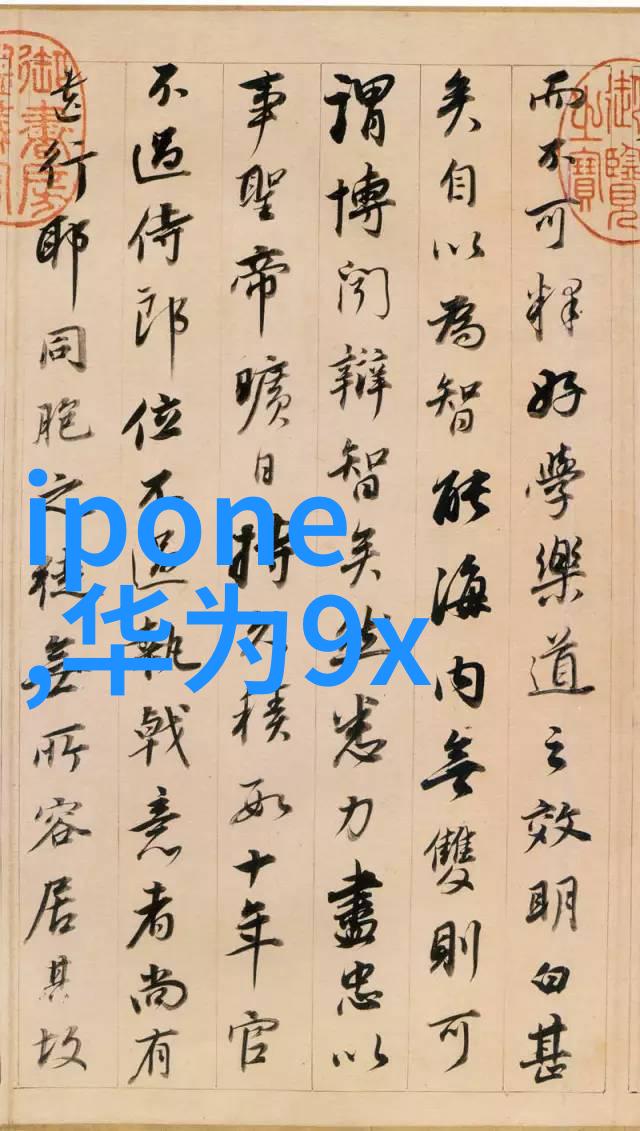 而不可釋好學樂道之效明白甚
矣自以為智能海内無雙則可
謂博聞辯智矣然悉力盡忠以
事聖帝曠日持久積數十年官
不過侍郎位不過執戟意者尚有
遺行耶同胞之徒無所容居其故
御覽
之寶
御書房
ipone
,华为9x